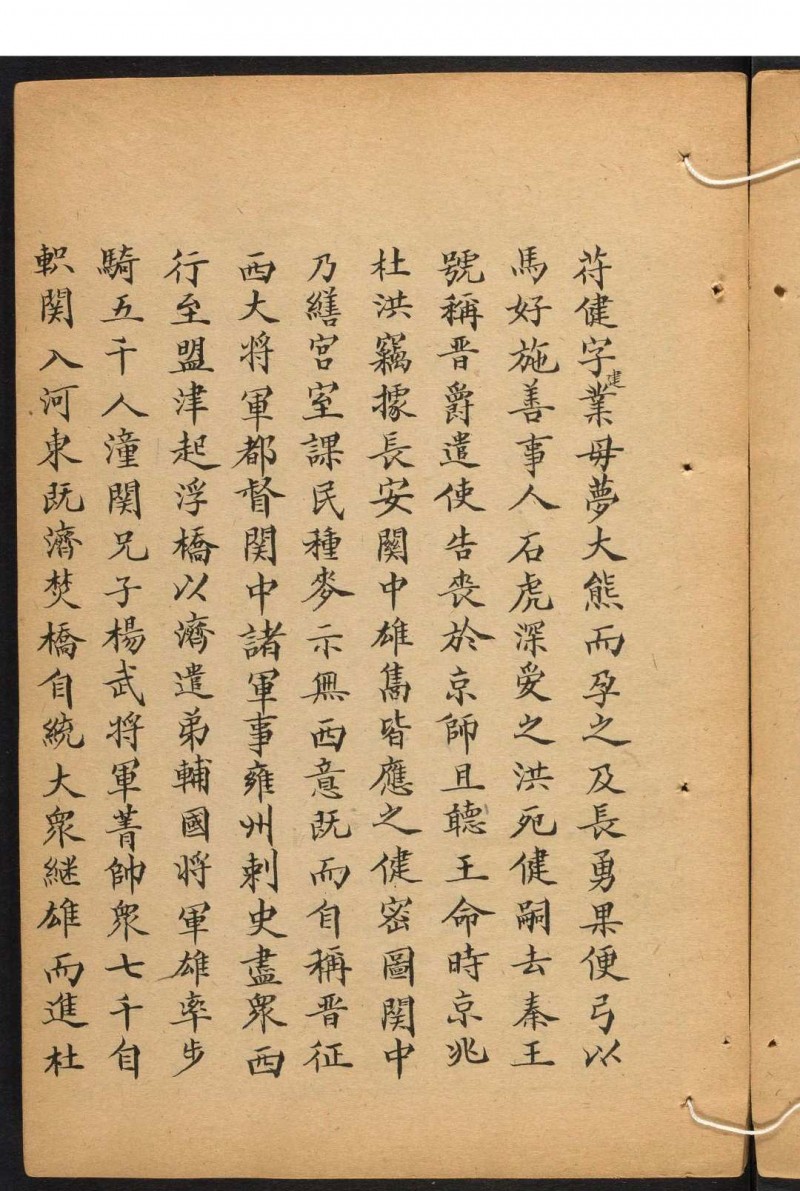 苻健字建業毋夢大熊而孕之及長勇果便弓以
馬好施善事人石虎深愛之洪死健嗣去秦王
號稱晋爵遣使告丧於京師且聽王命時京兆
杜洪竊據長安関中雄雋皆應之健密圖関中
乃繕宫室課民種麥示無西意既而自稱晋征
西大将軍都督関中諸軍事雍州刺史盡衆西
行至盟津起浮橋以濟遣弟輔國将軍雄率步
騎五千人潼関兄子楊武将軍菁帥衆七千自
軹関入河東既濟焚橋自統大衆継雄而進杜